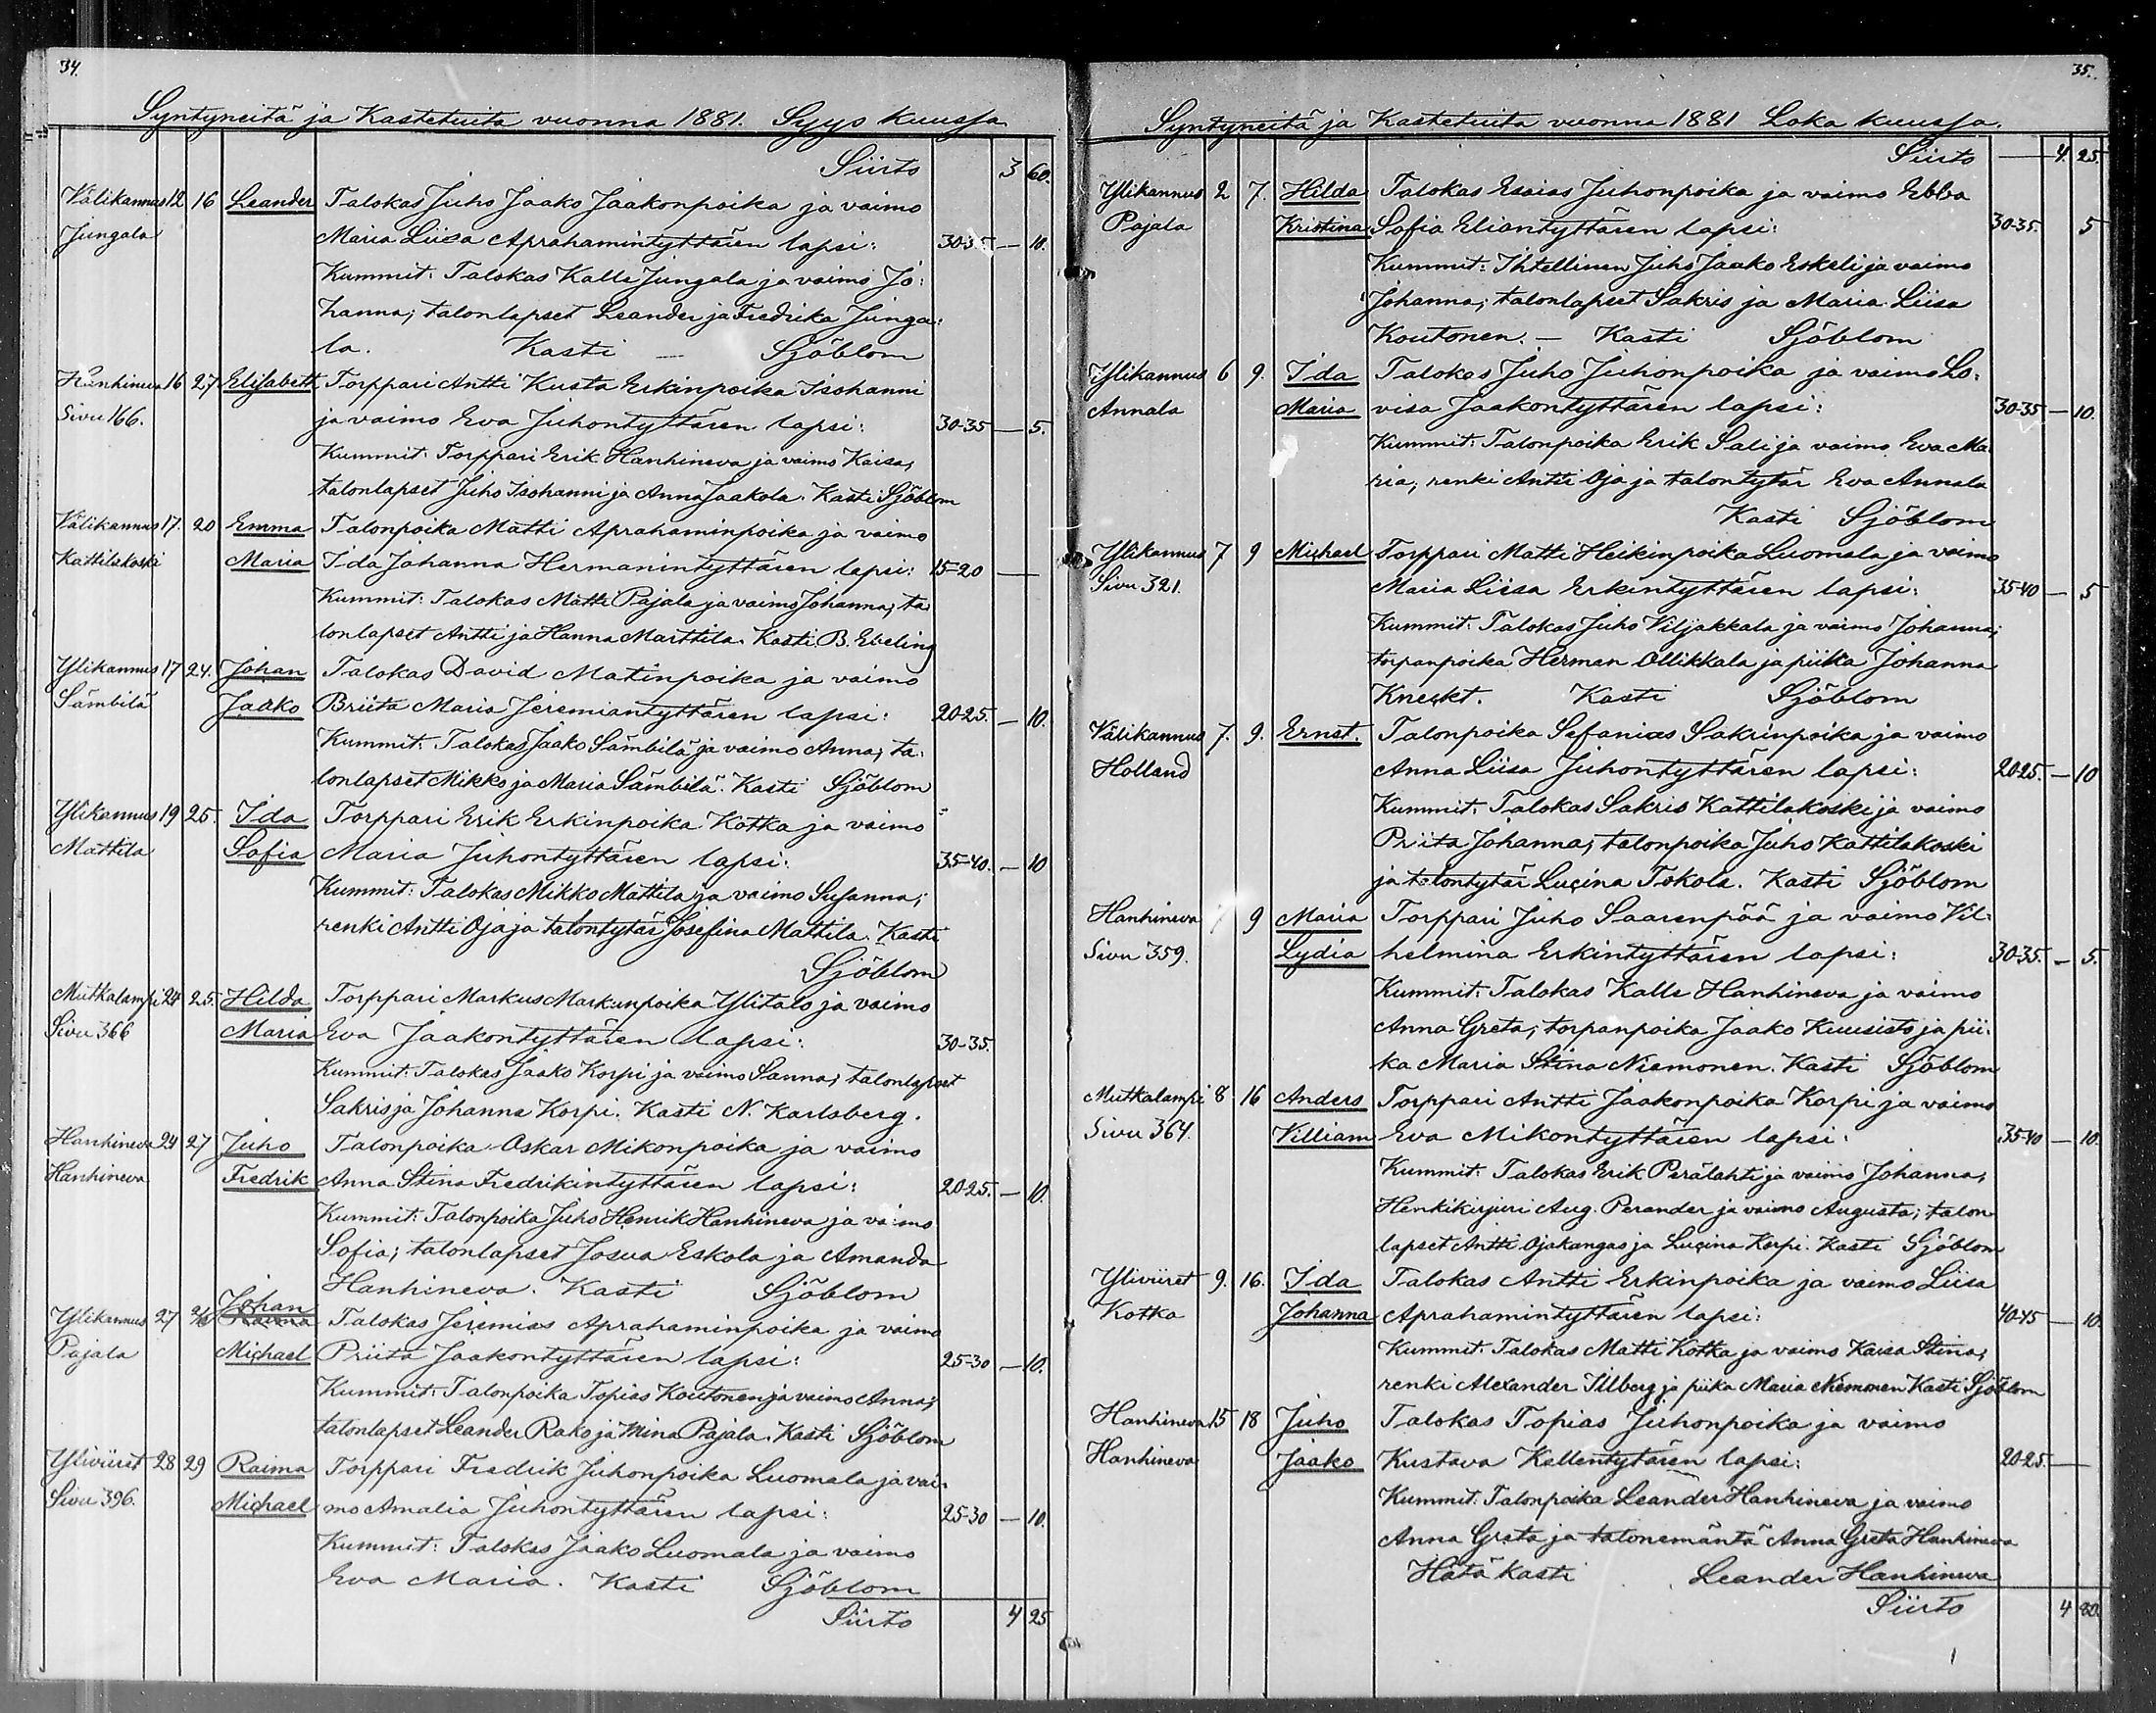 34.
Syntyneitä ja Kastetuita vuonna 1881. Syys kuussa
Siirto 3 60.
Välikannus 12 16 Leander Talokas Juho Jaako Jaakonpoika ja vaimo
Jungala Maria Liisa Aprahamintyttären lapsi: 30-35 — 10.
Kummit: Talokas Kalle Jungala ja vaimo Jo:
hanna; talonlapset Leander ja Fredrika Junga:
la. Kasti — Sjöblom
Hanhineva 16 27 Elisabeth Torppari Antti Kusta Erkinpoika Isohanni
Sivu 166. ja vaimo Eva Juhontyttären lapsi: 30-35 — 5.
Kummit: Torppari Erik Hanhineva ja vaimo Kaisa,
talonlapset Juho Isohanni ja Anna Jaakola. Kasti Sjöblom
Välikannus 17. 20 Emma Talonpoika Matti Aprahaminpoika ja vaimo
Kattilakoski Maria Ida Johanna Hermanintyttären lapsi: 15-20 —
Kummit: Talokas Matti Pajala ja vaimo Johanna; ta:
lonlapset Antti ja Hanna Marttila. Kasti B. Ebeling
Ylikannus 17 24. Johan Talokas David Matinpoika ja vaimo
Sämbilä Jaako Briita Maria Jeremiantyttären lapsi: 20-25. — 10.
Kummit: Talokas Jaako Sämbilä ja vaimo Anna; ta:
lonlapset Mikko ja Maria Sämbilä. Kasti Sjöblom
Ylikannus 19 25. Ida Torppari Erik Erkinpoika Kotka ja vaimo
Mattila Sofia Maria Juhontyttären lapsi: 35-40. — 10
Kummit: Talokas Mikko Mattila ja vaimo Susanna;
renki Antti Oja ja talontytär Josefina Mattila. Kasti
Sjöblom
Mutkalampi 24 25. Hilda Torppari Markus Markunpoika Ylitalo ja vaimo
Sivu 366 Maria Eva Jaakontyttären lapsi: 30-35.
Kummit: Talokas Jaako Korpi ja vaimo Sanna; talonlapset
Sakris ja Johanna Korpi. Kasti N. Karlsberg.
Hanhineva 24 27 Juho Talonpoika Oskar Mikonpoika ja vaimo
Hanhineva Fredrik Anna Stina Fredrikintyttären lapsi: 20-25. — 10.
Kummit: Talonpoika Juho Henrik Hanhineva ja vaimo
Sofia; talonlapset Josua Eskola ja Amanda
Hanhineva. Kasti Sjöblom
Johan
Ylikannus 27 Raima Talokas Jeremias Aprahaminpoika ja vaimo
Pajala Michael Priita Jaakontyttären lapsi: 25-30 — 10.
Kummit: Talonpoika Topias Koutonen ja vaimo Anna;
talonlapset Leander Rako ja Mina Pajala. Kasti Sjöblom
Yliviiret 28 29 Raima Torppari Fredrik Juhonpoika Luomala ja vai-
Sivu 396. Michael mo Amalia Juhontyttären lapsi: 25-30 — 10.
Kummit: Talokas Jaako Luomala ja vaimo
Eva Maria. Kasti Sjöblom
Siirto 4 25
35.
Syntyneitä ja Kastetuita vuonna 1881 Loka kuussa.
Siirto — 4. 25.
Ylikannus 2 7. Hilda Talokas Esaias Juhonpoika ja vaimo Ebba
Pajala Kristina Sofia Eliantyttären lapsi: 30-35. 5
Kummit: Ihtellinen Juho Jaako Eskeli ja vaimo
Johanna; talonlapset Sakris ja Maria Liisa
Koutonen. — Kasti Sjöblom
Ylikannus 6 9. Ida Talokas Juho Juhonpoika ja vaimo Lo:
Annala Maria visa Jaakontyttären lapsi: 30-35 — 10.
Kummit: Talonpoika Erik Sali ja vaimo Eva Ma:
ria, renki Antti Oja ja talontytär Eva Annala
Kasti Sjöblom
Ylikannus 7 9 Michael Torppari Matti Heikinpoika Luomala ja vaimo
Sivu 321. Maria Liisa Erkintyttären lapsi: 35-40 — 5
Kummit: Talokas Juho Viljakkala ja vaimo Johanna;
torpanpoika Herman Ollikkala ja piika Johanna
Kneckt. Kasti Sjöblom
Välikannus 7. 9. Ernst. Talonpoika Sefanias Sakrinpoika ja vaimo
Holland Anna Liisa Juhontyttären lapsi: 20-25. — 10
Kummit: Talokas Sakris Kattilakoski ja vaimo
Priita Johanna; talonpoika Juho Kattilakoski
ja talontytär Lucina Tokola. Kasti Sjöblom
Hanhineva 7 9 Maria Torppari Juho Saarenpää ja vaimo Vil:
Sivu 359. Lydia helmina Erkintyttären lapsi: 30-35. — 5.
Kummit: Talokas Kalle Hanhineva ja vaimo
Anna Greta; torpanpoika Jaako Kuusisto ja pii:
ka Maria Stina Niemonen. Kasti Sjöblom
Mutkalampi 8 16 Anders Torppari Antti Jaakonpoika Korpi ja vaimo
Sivu 364. Villiam Eva Mikontyttären lapsi: 35-40 — 10.
Kummit: Talokas Erik Perälahti ja vaimo Johanna,
Henkikirjuri Aug. Perander ja vaimo Augusta; talon
lapset Antti Ojakangas ja Lucina Korpi. Kasti Sjöblom
Yliviiret 9. 16. Ida Talokas Antti Erkinpoika ja vaimo Liisa
Kotka Johanna Aprahamintyttären lapsi: 40-45 — 10.
Kummit: Talokas Matti Kotka ja vaimo Kaisa Stina;
renki Alexander Illberg ja piika Maria Niemonen Kasti Sjöblom
Hanhineva 15 18 Juho Talokas Topias Juhonpoika ja vaimo
Hanhineva Jaako Kustava Kallentytären lapsi: 20-25. —
Kummit: Talonpoika Leander Hanhineva ja vaimo
Anna Greta ja talonemäntä Anna Greta Hanhineva
Hätä kasti Leander Hanhineva
Siirto 4 80.